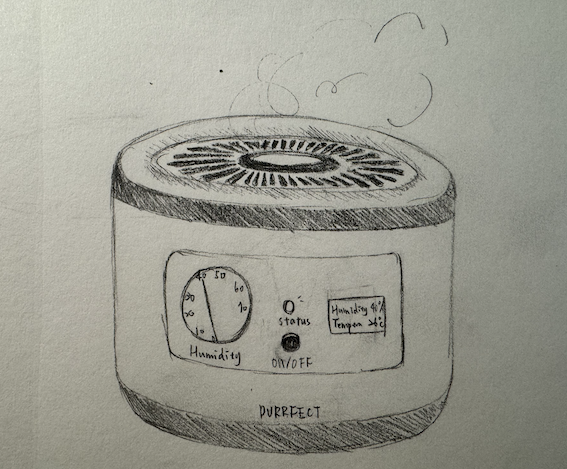 40 50
60
30
20
70
10
Humidity
status
ON/OFF
Humidity 40%
Temper 26°C
PURRFECT